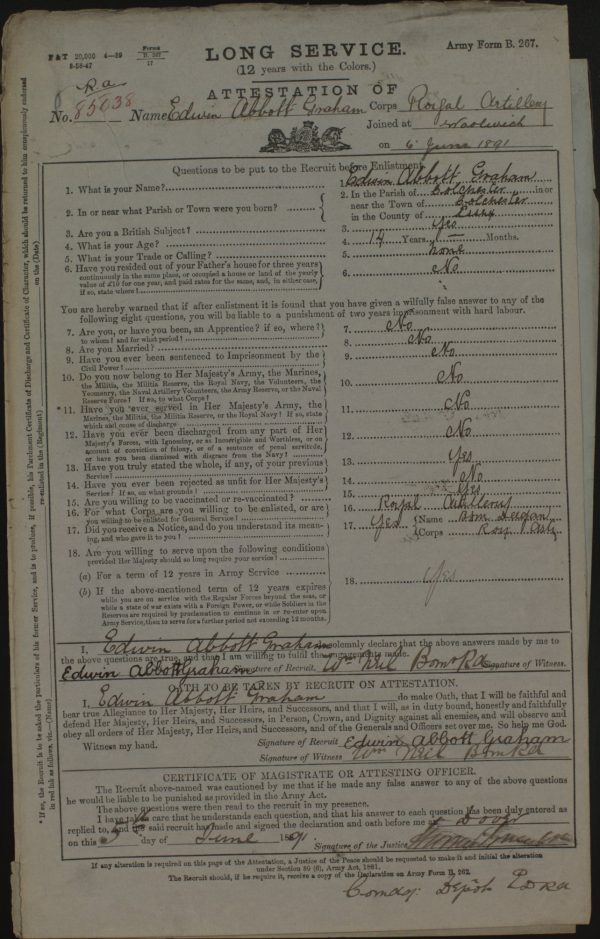 F&T 20,000 4—89
8-58-47
Forms
B. 267
17
LONG SERVICE.
(12 years with the Colors.)
Army Form B. 267.
ATTESTATION OF
R.a
No. 85638 Name Edwin Abbott Graham Corps Royal Artillery
Joined at Woolwich
on 6 June 1891
Questions to be put to the Recruit before Enlistment.
1. What is your Name? 1. Edwin Abbott Graham
2. In or near what Parish or Town were you born? 2. In the Parish of Colchester in or
near the Town of Colchester
in the County of
3. Are you a British Subject? 3. Yes
4. What is your Age? 4. Years Months.
5. What is your Trade or Calling? 5. none
6. Have you resided out of your Father's house for three years 6. No
continuously in the same place, or occupied a house or land of the yearly
value of £10 for one year, and paid rates for the same, and, in either case,
if so, state where?
You are hereby warned that if after enlistment it is found that you have given a wilfully false answer to any of the
following eight questions, you will be liable to a punishment of two years imprisonment with hard labour.
7. Are you, or have you been, an Apprentice? if so, where? 7. No
to whom? and for what period?
8. Are you Married? 8. No
9. Have you ever been sentenced to Imprisonment by the 9. No
Civil Power?
10. Do you now belong to Her Majesty's Army, the Marines, 10. No
the Militia, the Militia Reserve, the Royal Navy, the Volunteers, the
Yeomanry, the Naval Artillery Volunteers, the Army Reserve, or the Naval
Reserve Force? If so, to what Corps?
*11. Have you ever served in Her Majesty's Army, the 11. No
Marines, the Militia, the Militia Reserve, or the Royal Navy? If so, state
which and cause of discharge
12. Have you ever been discharged from any part of Her 12. No
Majesty's Forces, with Ignominy, or as Incorrigible and Worthless, or on
account of conviction of felony, or of a sentence of penal servitude,
or have you been dismissed with disgrace from the Navy?
13. Have you truly stated the whole, if any, of your previous 13. Yes
Service?
14. Have you ever been rejected as unfit for Her Majesty's 14. No
Service? If so, on what grounds?
15. Are you willing to be vaccinated or re-vaccinated? 15. Yes
16. For what Corps are you willing to be enlisted, or are 16. Royal Artillery
you willing to be enlisted for General Service?
17. Did you receive a Notice, and do you understand its mean- 17. Yes Name Bom
ing, and who gave it to you? Corps Roy Arty
18. Are you willing to serve upon the following conditions
provided Her Majesty should so long require your service?
(a) For a term of 12 years in Army Service
18. Yes
(b) If the above-mentioned term of 12 years expires
while you are on service with the Regular Forces beyond the seas, or
while a state of war exists with a Foreign Power, or while Soldiers in the
Reserves are required by proclamation to continue in or re-enter upon
Army Service, then to serve for a further period not exceeding 12 months.
I, Edwin Abbott Graham solemnly declare that the above answers made by me to
the above questions are true, and that I am willing to fulfil the engagements made.
Edwin Abbott Graham Signature of Recruit. Wm Neil Bomr Ra Signature of Witness.
OATH TO BE TAKEN BY RECRUIT ON ATTESTATION.
I, Edwin Abbott Graham do make Oath, that I will be faithful and
bear true Allegiance to Her Majesty, Her Heirs, and Successors, and that I will, as in duty bound, honestly and faithfully
defend Her Majesty, Her Heirs, and Successors, in Person, Crown, and Dignity against all enemies, and will observe and
obey all orders of Her Majesty, Her Heirs, and Successors, and of the Generals and Officers set over me. So help me God.
Witness my hand. Signature of Recruit Edwin Abbott Graham
Signature of Witness Wm Neil Bomr Ra
CERTIFICATE OF MAGISTRATE OR ATTESTING OFFICER.
The Recruit above-named was cautioned by me that if he made any false answer to any of the above questions
he would be liable to be punished as provided in the Army Act.
The above questions were then read to the recruit in my presence.
I have taken care that he understands each question, and that his answer to each question has been duly entered as
replied to, and the said recruit has made and signed the declaration and oath before me at Dover
on this 5 day of June 1891.
Signature of the Justice
If any alteration is required on this page of the Attestation, a Justice of the Peace should be requested to make it and initial the alteration
under Section 80 (6), Army Act, 1881.
The Recruit should, if he require it, receive a copy of the Declaration on Army Form B. 262.
Comdg. Depôt RA
* If so, the Recruit is to be asked the particulars of his former Service, and is to produce, if possible, his Parchment Certificate of Discharge and Certificate of Character, which should be returned to him conspicuously endorsed
in red ink as follows, viz.—(Name) re-enlisted in the (Regiment) on the (Date)